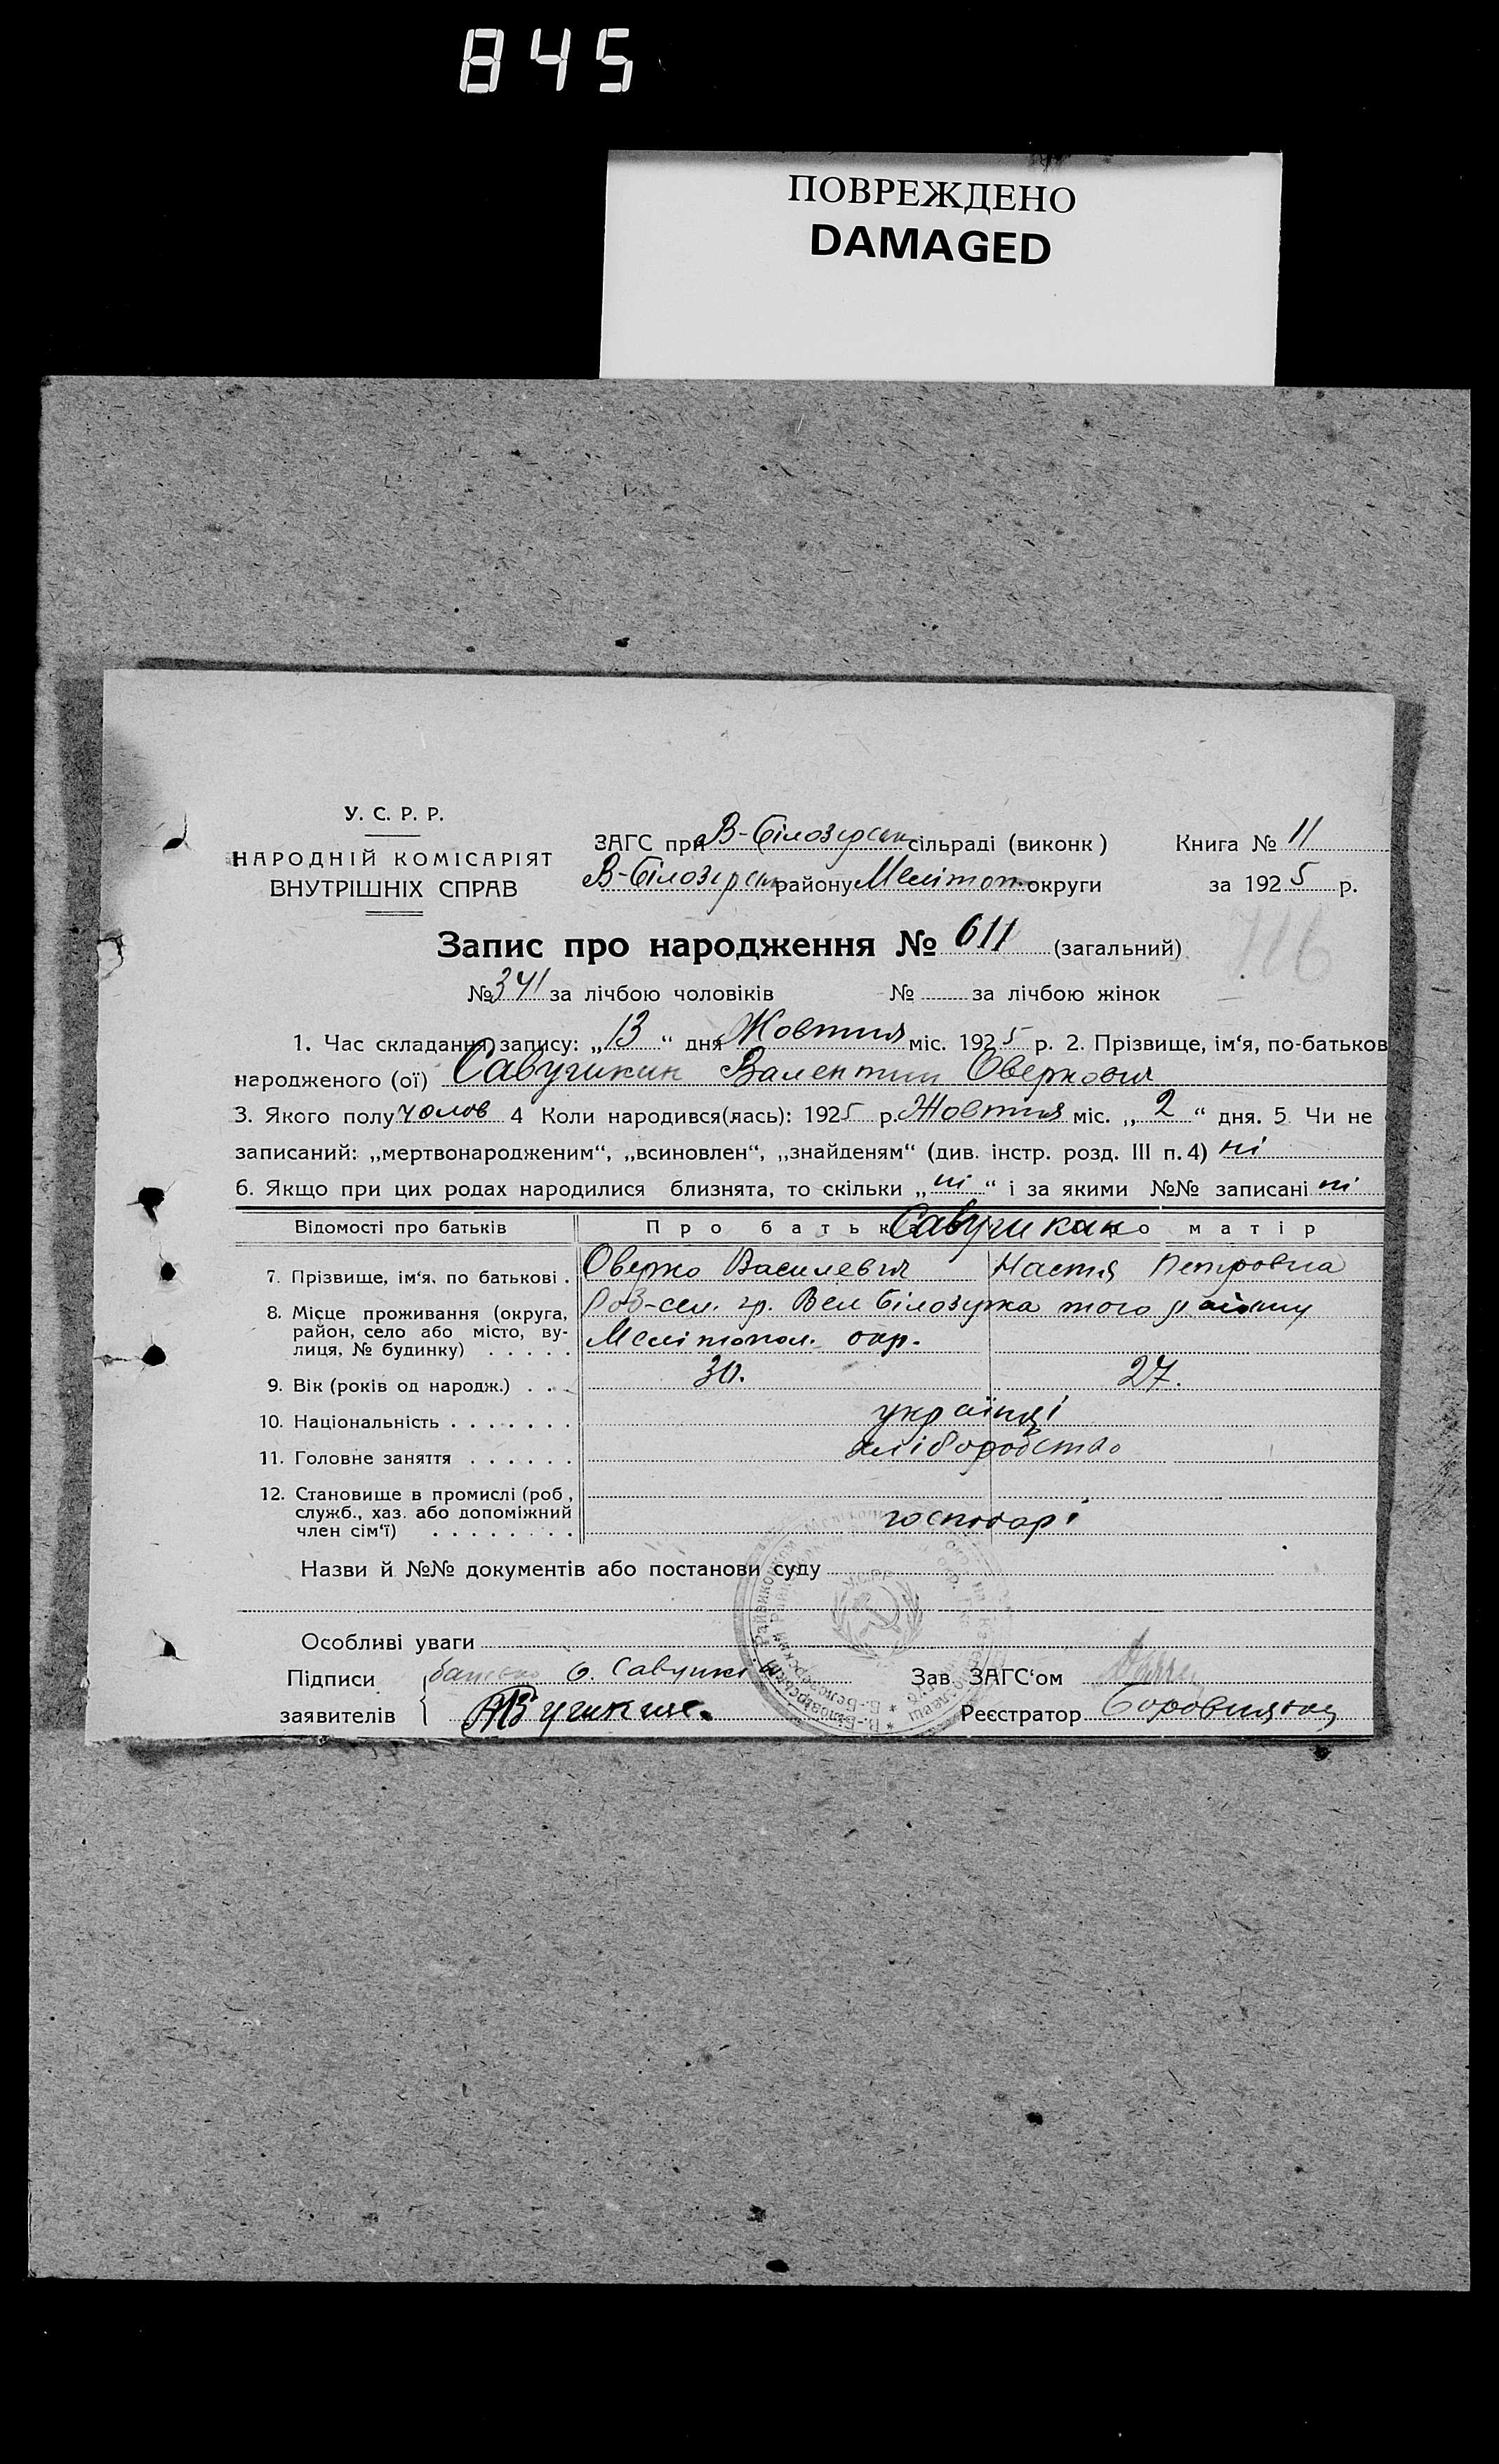 845
ПОВРЕЖДЕНО
DAMAGED
У. С. Р. Р.
НАРОДНІЙ КОМІСАРІЯТ
ВНУТРІШНІХ СПРАВ
ЗАГС при В-Білозерськ сільраді (виконк) Книга № 11
В-Білозерськ району Мелітоп. округи за 1925 р.
Запис про народження № 611 (загальний)
716
№ 341 за лічбою чоловіків № за лічбою жінок
1. Час складання запису: „13“ дня Жовтня міс. 1925 р. 2. Прізвище, ім‘я, по-батьков
народженого (ої) Савушкин Валентин Оверкович
3. Якого полу чолов 4 Коли народився(лась): 1925 р. Жовтня міс. „2“ дня. 5. Чи не
записаний: „мертвонародженим“, „всиновлен“, „знайденям“ (див. інстр. розд. III п. 4) ні
6. Якщо при цих родах народилися близнята, то скільки „ні“ і за якими №№ записані ні
Відомості про батьків Про батька Про матір
7. Прізвище, ім‘я, по батькові . Оверко Василевич Настя Петровна
8. Місце проживання (округа, район, село або місто, вулиця, № будинку) . . . . . сел. гр. Вел Білозерка того району
Меліпопол. окр.
9. Вік (років од народж.) . . . 30. 27.
10. Національність . . . . . . . українці
11. Головне заняття . . . . . . хліборобство
12. Становище в промислі (роб,
служб., хаз. або допоміжний
член сім‘ї) . . . . . . . . господарі
Назви й №№ документів або постанови суду
Особливі уваги
Підписи батько О. Савушкін Зав. ЗАГС‘ом
заявителів Реєстратор